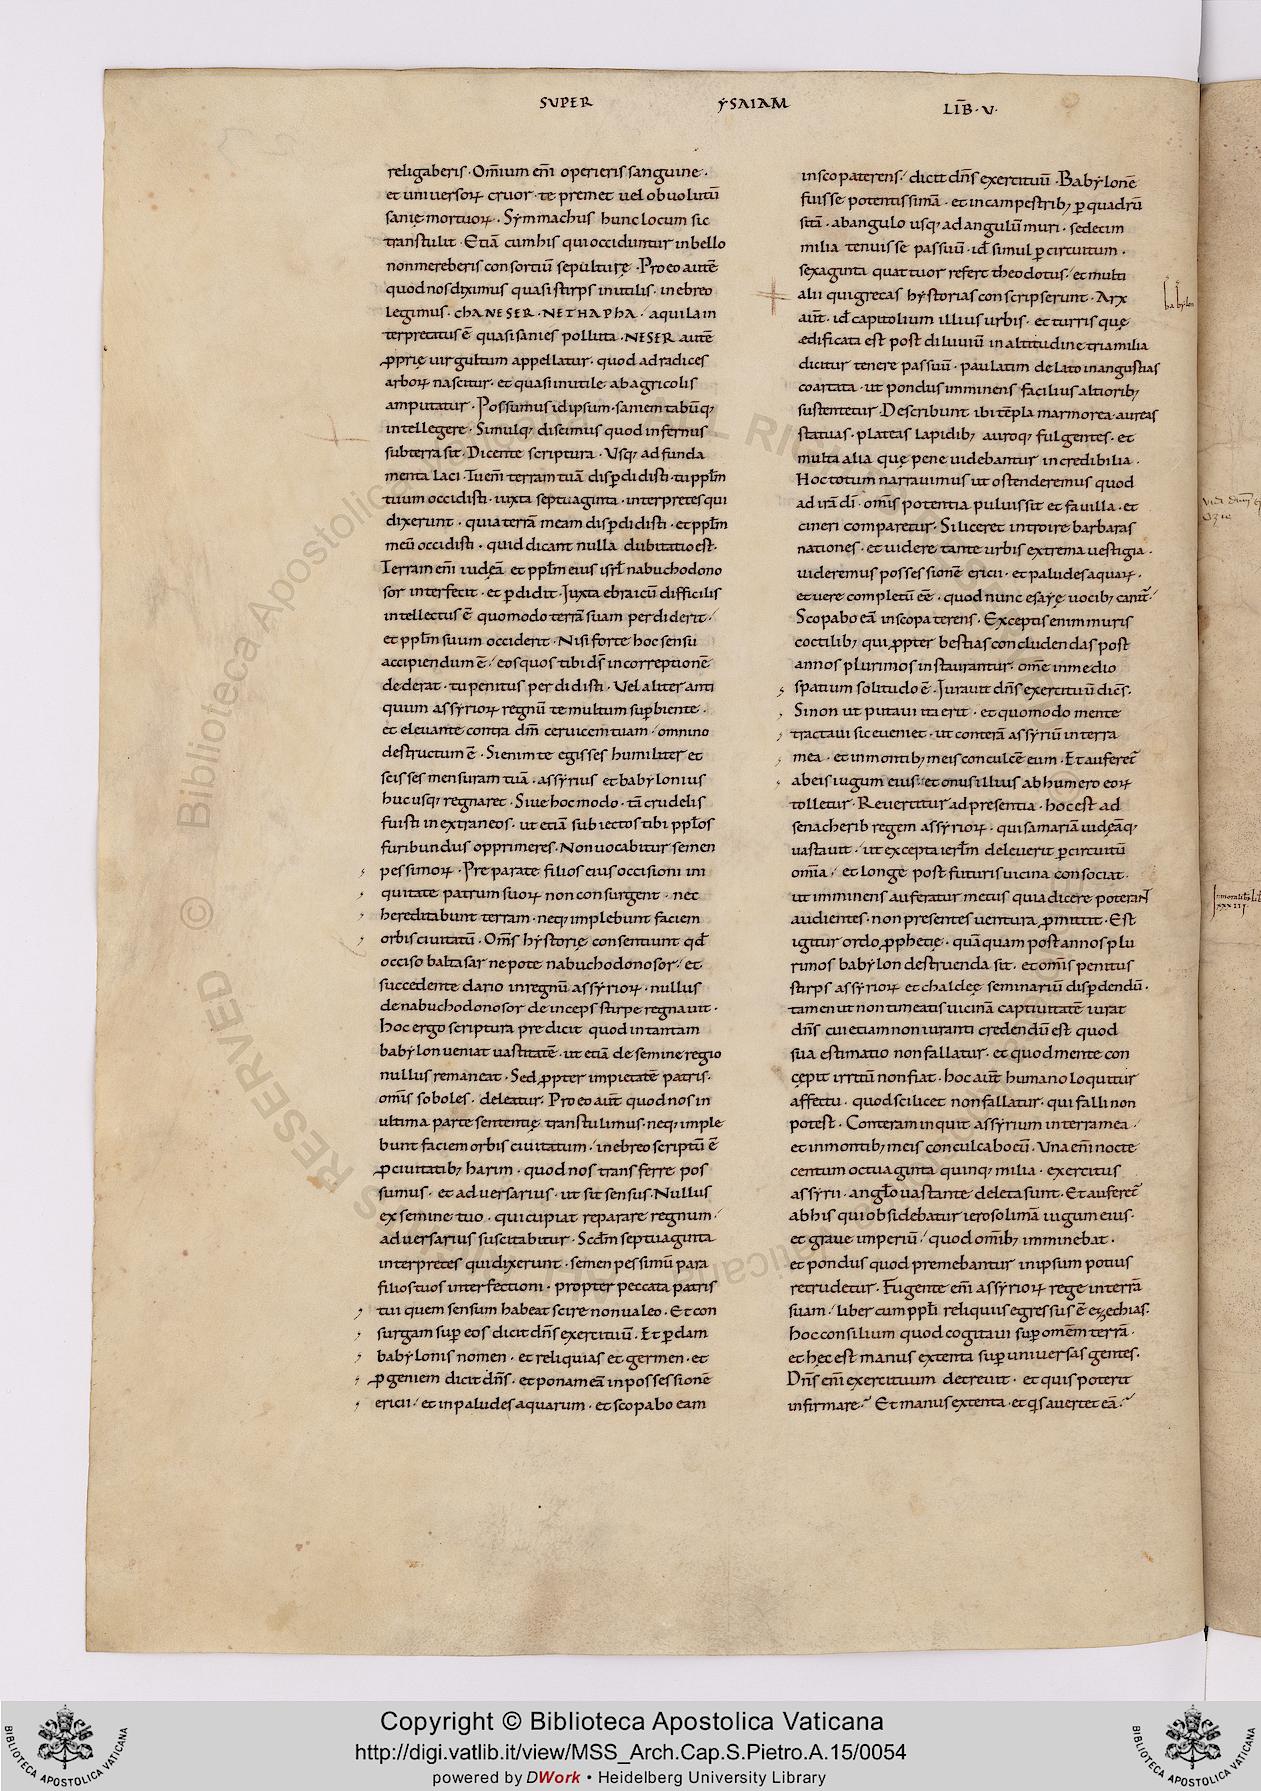 SVPER YSAIAM LIB̅·V·
religaberis· Om̅ium eni̅ operieris sanguine·
et universoꝝ cruor· te premet vel obvolutu̅
sanię mortuoꝝ· Sẏmmachus hunc locum sic
transtulit· Etia̅ cum his qui occiduntur in bello
non mereberis consortiu̅ sepulturę· Pro eo aute̅
quod nos diximus quasi stirps inutilis· in ebreo
legimus· chaNESER· NEThAPhA· aquila in
terpretatus e̅ quasi sanies polluta· NESER aute̅
ꝓprię virgultum appellatur· quod ad radices
arboꝝ nascitur· et quasi inutile ab agricolis
amputatur· Possumus id ipsum· saniem tabu̅q;
intellegere· Simulq; discimus quod infernus
sub terra sit· Dicente scriptura· Vsq; ad funda
menta laci· Tu eni̅ terram tua̅ disꝑdidisti· tu ppl̅m
tuum occidisti· iuxta septuaginta· interpretes qui
dixerunt· quia terra̅ meam disꝑdidisti· et ppl̅m
meu̅ occidisti· quid dicant nulla dubitatio est·
Terram eni̅ iudęa̅ et ppl̅m eius isrl̅ nabuchodono
sor interfecit· et ꝑdidit· Iuxta ebraicu̅ difficilis
intellectus e̅ quomodo terra̅ suam perdiderit·
et ppl̅m suum occiderit· Nisi forte hoc sensu
accipiendum e̅· eos quos tibi ds̅ in correptione̅
dederat· tu penitus perdidisti· Vel aliter anti
quum assẏrioꝝ regnu̅ te multum suꝑbiente·
et elevante contra dm̅ cervicem tuam· omnino
destructum e̅· Si enim te egisses humiliter et
scisses mensuram tua̅· assẏrius et babẏlonius
huc usq; regnaret· Sive hoc modo· ta̅ crudelis
fuisti in extraneos· ut etia̅ subiectos tibi ppl̅os
furibundus opprimeres· Non vocabitur semen
pessimoꝝ· Preparate filios eius occisioni ini
quitate patrum suoꝝ non consurgent· nec
hereditabunt terram· neq; implebunt faciem
orbis civitatu̅· Om̅s hẏstorię consentiunt qđ
occiso baltasar nepote nabuchodonosor· et
succedente dario in regnu̅ assẏrioꝝ· nullus
de nabuchodonosor deinceps stirpe regnavit·
Hoc ergo scriptura predicit quod in tantam
babẏlon veniat vastitate̅· ut etia̅ de semine regio
nullus remaneat· Sed ꝓpter impietate̅ patris·
om̅is soboles· deleatur· Pro eo aut̅ quod nos in
ultima parte sententię transtulimus· neq; imple
bunt faciem orbis civitatum· in ebreo scriptu̅ e̅
ꝓ civitatib; harim· quod nos transferre pos
sumus· et adversarius· ut sit sensus· Nullus
ex semine tuo· qui cupiat reparare regnum·
adversarius suscitabitur· Scd̅m septuaginta
interpretes qui dixerunt· semen pessimu̅ para
filios tuos interfectioni· propter peccata patris
tui quem sensum habeat scire non valeo· Et con
surgam suꝑ eos dicit dn̅s exercituu̅· Et ꝑdam
babẏlonis nomen· et reliquias et germen· et
ꝓgeniem dicit dn̅s· et ponam ea̅ in possessione̅
ericii· et in paludes aquarum· et scopabo eam
in scopa terens· dicit dn̅s exercituu̅· Babẏlone̅
fuisse potentissima̅· et in campestrib; ꝑ quadru̅
sita̅· ab angulo usq; ad angulu̅ muri· sedecim
milia tenuisse passuu̅· id̅ simul ꝑ circuitum·
sexaginta quattuor refert theodotus· et multi
alii qui grecas hẏstorias conscripserunt· Arx
aut̅· id̅ capitolium illius urbis· et turris quę
ędificata est post diluviu̅ in altitudine tria milia
dicitur tenere passuu̅· paulatim de lato in angustias
coartata· ut pondus imminens facilius altiorib;
sustentetur· Describunt ibi te̅pla marmorea· aureas
statuas· plateas lapidib; auroq; fulgentes· et
multa alia quę pene videbantur incredibilia·
Hoc totum narravimus ut ostenderemus quod
ad ira̅ di̅· om̅is potentia pulvis sit et favilla· et
cineri comparetur· Si liceret introire barbaras
nationes· et videre tante urbis extrema vestigia·
videremus possessione̅ ericii· et paludes aquaꝝ·
et vere completu̅ e̅e̅· quod nunc esaẏę vocib; canit̅·
Scopabo ea̅ in scopa terens· Exceptis enim muris
coctilib; qui ꝓpter bestias concludendas post
annos plurimos instaurantur· om̅e in medio
spatium solitudo e̅· Iuravit dn̅s exercituu̅ dice̅s·
Si non ut putavi ita erit· et quomodo mente
tractavi sic eveniet· ut contera̅ assẏriu̅ in terra
mea· et in montib; meis conculce̅ eum· Et auferet̅
ab eis iugum eius· et onus illius ab humero eoꝝ
tolletur· Revertitur ad presentia· hoc est ad
senacherib regem assẏrioꝝ· qui samaria̅ iudęa̅q;
vastavit· ut excepta ierl̅m deleverit ꝑ circuitu̅
om̅ia· et longe post futuris vicina consociat·
ut imminens auferatur metus quia dicere poterant
audientes· non presentes ventura ꝓmittit· Est
igitur ordo ꝓphetię· qua̅quam post annos plu
rimos babẏlon destruenda sit· et om̅is penitus
stirps assẏrioꝝ et chaldeę seminariu̅ disꝑdendu̅·
tamen ut non timeatis vicina̅ captivitate̅ iurat
dn̅s cui etiam non iuranti credendu̅ est quod
sua estimatio non fallatur· et quod mente con
cępit irritu̅ non fiat· hoc aut̅ humano loquitur
affectu· quod scilicet non fallatur· qui falli non
potest· Conteram inquit assẏrium in terra mea·
et in montib; meis conculcabo eu̅· Vna eni̅ nocte
centum octuaginta quinq; milia· exercitus
assẏrii· angl̅o vastante deleta sunt· Et auferet̅
ab his qui obsidebatur ierosolima̅ iugum eius·
et grave imperiu̅· quod om̅ib; imminebat·
et pondus quod premebantur in ipsum potius
retrudetur· Fugente eni̅ assẏrioꝝ rege in terra̅
suam· liber cum ppl̅i reliquiis egressus e̅ ezechias·
hoc consilium quod cogitavi suꝑ omne̅m terra̅·
et hęc est manus extenta suꝑ universas gentes·
Dn̅s eni̅ exercituum decrevit· et quis poterit
infirmare· Et manus extenta· et qis avertet ea̅·
babẏlon